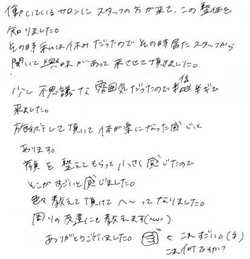 働いているサロンにスタッフの方が来て、この整体を
知りました。
その時私は休みだったのでその時居たスタッフから
聞いて興味があって来させて頂きました。
少し不思議な雰囲気だったので半信半ギで
来ました。
施術して頂いて体が楽になった感じと
あります。
顔を整えてもらって小さく感じたので
そこがすごいと感じました。
色々教えて頂けてへ〜ってなりました。
周りの友達にも教えます(^^)
ありがとうございました。
← これすごい
これ何ですか?